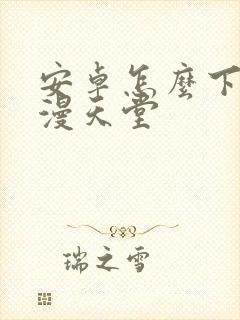 安卓怎麼下
漫天堂
瑞之雪